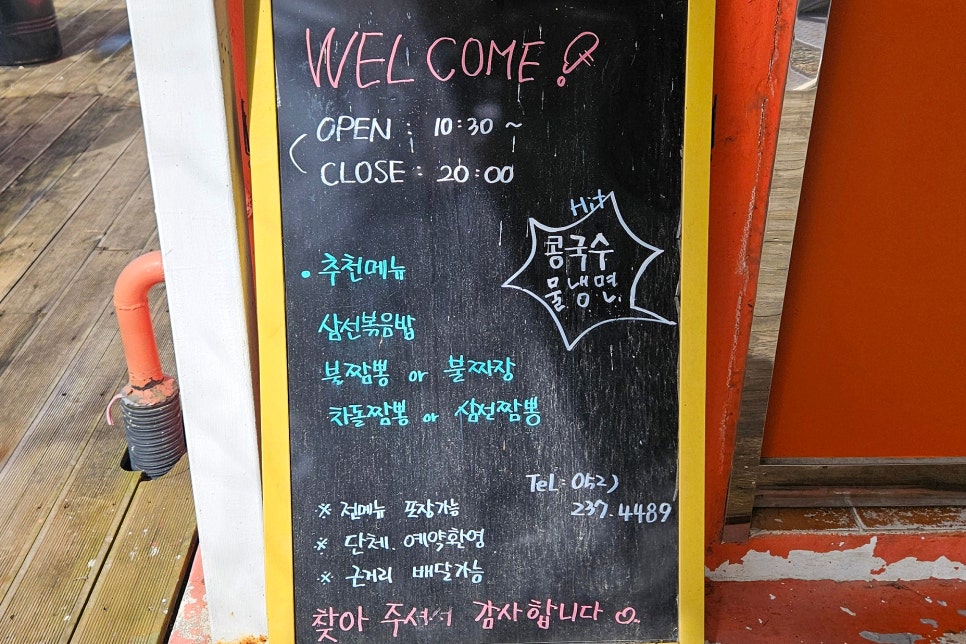 WELCOME!
OPEN : 10:30 ~
CLOSE : 20:00
Hit
콩국수
물냉면.
• 추천메뉴
삼선볶음밥
불짬뽕 or 불짜장
차돌짬뽕 or 삼선짬뽕
Tel : 052)
237.4489
※ 전메뉴 포장가능
※ 단체. 예약환영
※ 근거리 배달가능
찾아 주셔서 감사합니다